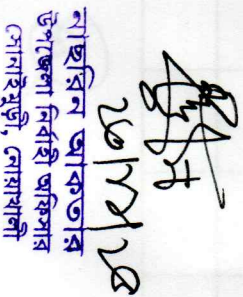 নাছরিন আকতার
উপজেলা নির্বাহী অফিসার
সোনাইমুড়ী, নোয়াখালী